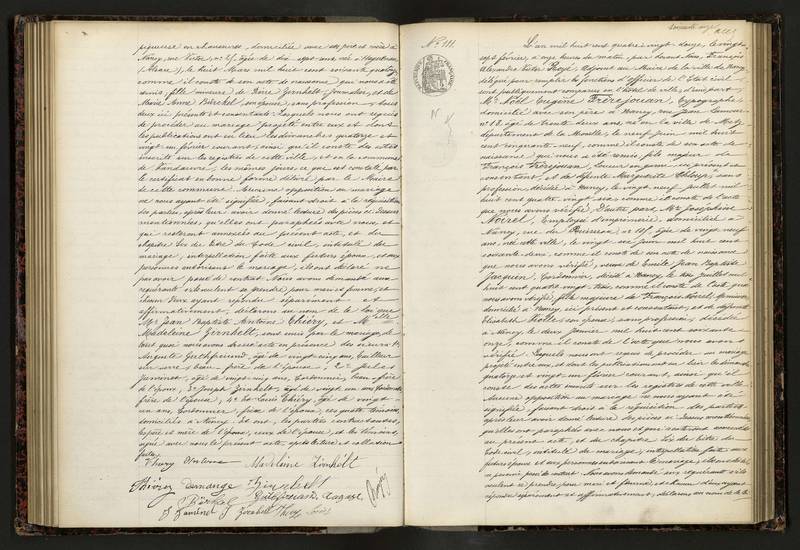 piqueuse en chaussures, domiciliée avec ses père et mère à
Nancy, rue
(Alsace), le huit Mars mil huit cent soixante quatorze
comme il conste de son acte de naissance qui nous a été
remis, fille mineure de Pierre Zirnhelt, Journalier, et de
Marie Anne Birckel son épouse, sans profession, tous
deux ici présents et consentants. Lesquels nous ont requis
de procéder au mariage projeté entre eux et dont
les publications ont eu lieu les dimanches quatorze et
vingt un février courant, ainsi qu'il conste des actes
inscrits sur les registres de cette ville, et en la commune
de Vandœuvre, les mêmes jours, ce qui est constaté par
le certificat en bonne forme délivré par le Maire
de cette commune. Aucune opposition au mariage
ne nous ayant été signifiée, faisant droit à la réquisition
des parties, après leur avoir donné lecture des pièces ci-dessus
mentionnées, qu'elles ont paraphées avec nous et
qui resteront annexées au présent acte, et du
chapitre six du titre du Code civil, intitulé du
mariage, interpellation faite aux futurs époux, et aux
personnes autorisant le mariage, ils ont déclaré ne
pas avoir passé de contrat. Nous avons demandé aux
requérants s'ils veulent se prendre pour mari et femme, et
chacun d'eux ayant répondu séparément et
affirmativement, déclarons au nom de la loi que
Mr. Jean Baptiste Antoine Thiéry, et Melle
Madeleine Zirnhelt, sont unis par le mariage, de
tout quoi nous avons dressé acte en présence des sieurs 1°
Auguste
sur verre, beau-frère de l'épouse, 2°
âgé de vingt cinq ans, Cordonnier, beau-frère
de l'époux, 3° Joseph Zirnhelt, âgé de vingt un ans
frère de l'épouse, 4° Louis Thiéry, âgé de vingt-
un ans, Cordonnier, frère de l'époux, ces quatre témoins
domiciliés à Nancy. Et ont, les parties contractantes,
le père et mère de l'époux, ceux de l'épouse, et les témoins
signé avec nous le présent acte, après lecture et collation
faites.
Thiery Antoine Madeleine Zirnhelt
Thiéry Demange Zirnhelt
Birckel
J Zirnhelt Thiery Louis
N° 111.
L'an mil huit cent quatre vingt douze, le vingt
sept février, à onze heures du matin, par devant Nous, François
Alexandre Victor adjoint au Maire de la ville de Nancy,
délégué pour remplir les fonctions d'officier de l'Etat civil
sont publiquement comparus en l'hôtel de ville, d'une part,
Mr. Noël Eugène Frèrejouan, Typographe,
domicilié avec son père à Nancy, rue
n° 8, âgé de trente deux ans, né en la ville de Metz,
département de la Moselle, le neuf juin mil huit
cent cinquante-neuf, comme il conste de son acte de
naissance qui nous a été remis, fils majeur de
François Frèrejouan, ici présent et
consentant, et de défunte Marguerite sans
profession, décédée à Nancy, le vingt neuf juillet mil
huit cent quatre vingt six, comme il conste de l'acte
que nous avons vérifié. D'autre part, Mme Joséphine
Noirel, Employée d'imprimerie, domiciliée à
Nancy, rue du Ruisseau, n° âgée de vingt neuf
ans, née cette ville, le vingt six Juin mil huit cent
soixante deux, comme il conste de son acte de naissance
que nous avons vérifié, veuve de Emile Jean Baptiste
Jacquin, Cordonnier, décédé à Nancy, le trois juillet mil
huit cent quatre vingt trois, comme il conste de l'acte que
nous avons vérifié, fille majeure de François Noirel, Menuisier,
domicilié à Nancy, ici présent et consentant, et de défunte
Elisabeth son épouse, sans profession, décédée
à Nancy, le deux janvier mil huit cent soixante
onze, comme il conste de l'acte que nous avons
vérifié. Lesquels nous ont requis de procéder au mariage
projeté entre eux, et dont les publications ont eu lieu les dimanches
quatorze et vingt un février courant, ainsi qu'il
conste des actes inscrits sur les registres de cette ville.
Aucune opposition au mariage ne nous ayant été
signifiée, faisant droit à la réquisition des parties,
après leur avoir donné lecture des pièces ci-dessus mentionnées,
qu'elles ont paraphées avec nous et qui resteront annexées
au présent acte, et du chapitre six du titre du
Code civil, intitulé du mariage, interpellation faite aux
futurs époux et aux personnes autorisant le mariage, ils ont déclaré
ne pas avoir passé de contrat. Nous avons demandé aux requérants s'ils
veulent se prendre pour mari et femme, et chacun d'eux ayant
répondu séparément et affirmativement, déclarons au nom de la loi